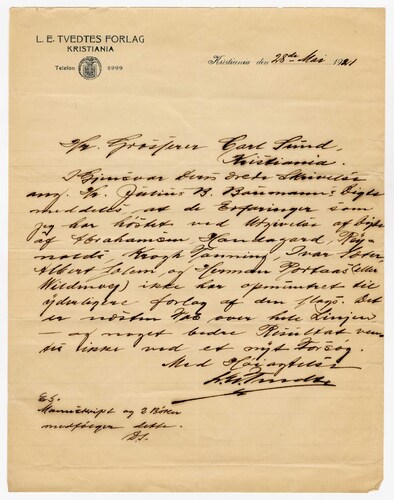 L. E. TVEDTES FORLAG
KRISTIANIA
Telefon 8999
Kristiania den 28de Mai 1921
Hr. Grosserer Carl Lund,
Kristiania.
I Gjensvar Deres ærede Skrivelse
ang. Hr. Julius B. Baumann's Digte
meddeles at de Erfaringer som
jeg har høstet ved Utgivelse af Digte
af Abrahamsen, Handagard, Rey-
nolds, Krogh Tonning, Ivar Sæter,
Albert Solem og Herman Portaas (eller
Wildenvey) ikke har opmuntret til
yderligere forlag af den slags. Det
er næsten Tab over hele Linjen
– og noget bedre Resultat ventes
ikke ved et nyt Forsøg.
Med Høiagtelse
L. E. Tvedte
E.S.
Manuskript og 2 Bøker
medfølger dette.
D.S.